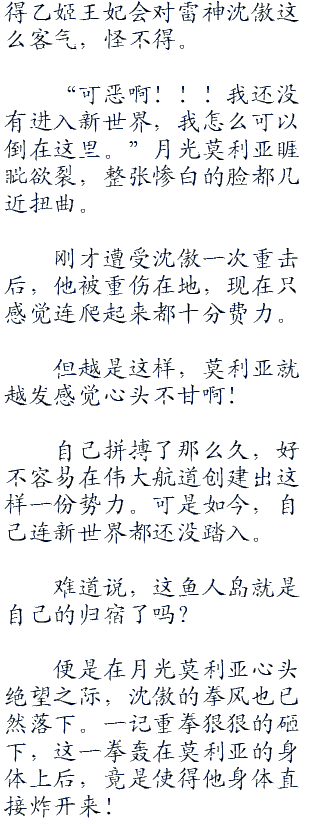 得乙姬王妃会对雷神沈傲这
么客气，怪不得。
“可恶啊！！！我还没
有进入新世界，我怎么可以
倒在这里。”月光莫利亚睚
眦欲裂，整张惨白的脸都几
近扭曲。
刚才遭受沈傲一次重击
后，他被重伤在地，现在只
感觉连爬起来都十分费力。
但越是这样，莫利亚就
越发感觉心头不甘啊！
自己拼搏了那么久，好
不容易在伟大航道创建出这
样一份势力。可是如今，自
己连新世界都还没踏入。
难道说，这鱼人岛就是
自己的归宿了吗？
便是在月光莫利亚心头
绝望之际，沈傲的拳风也已
然落下。一记重拳狠狠的砸
下，这一拳轰在莫利亚的身
体上后，竟是使得他身体直
接炸开来！